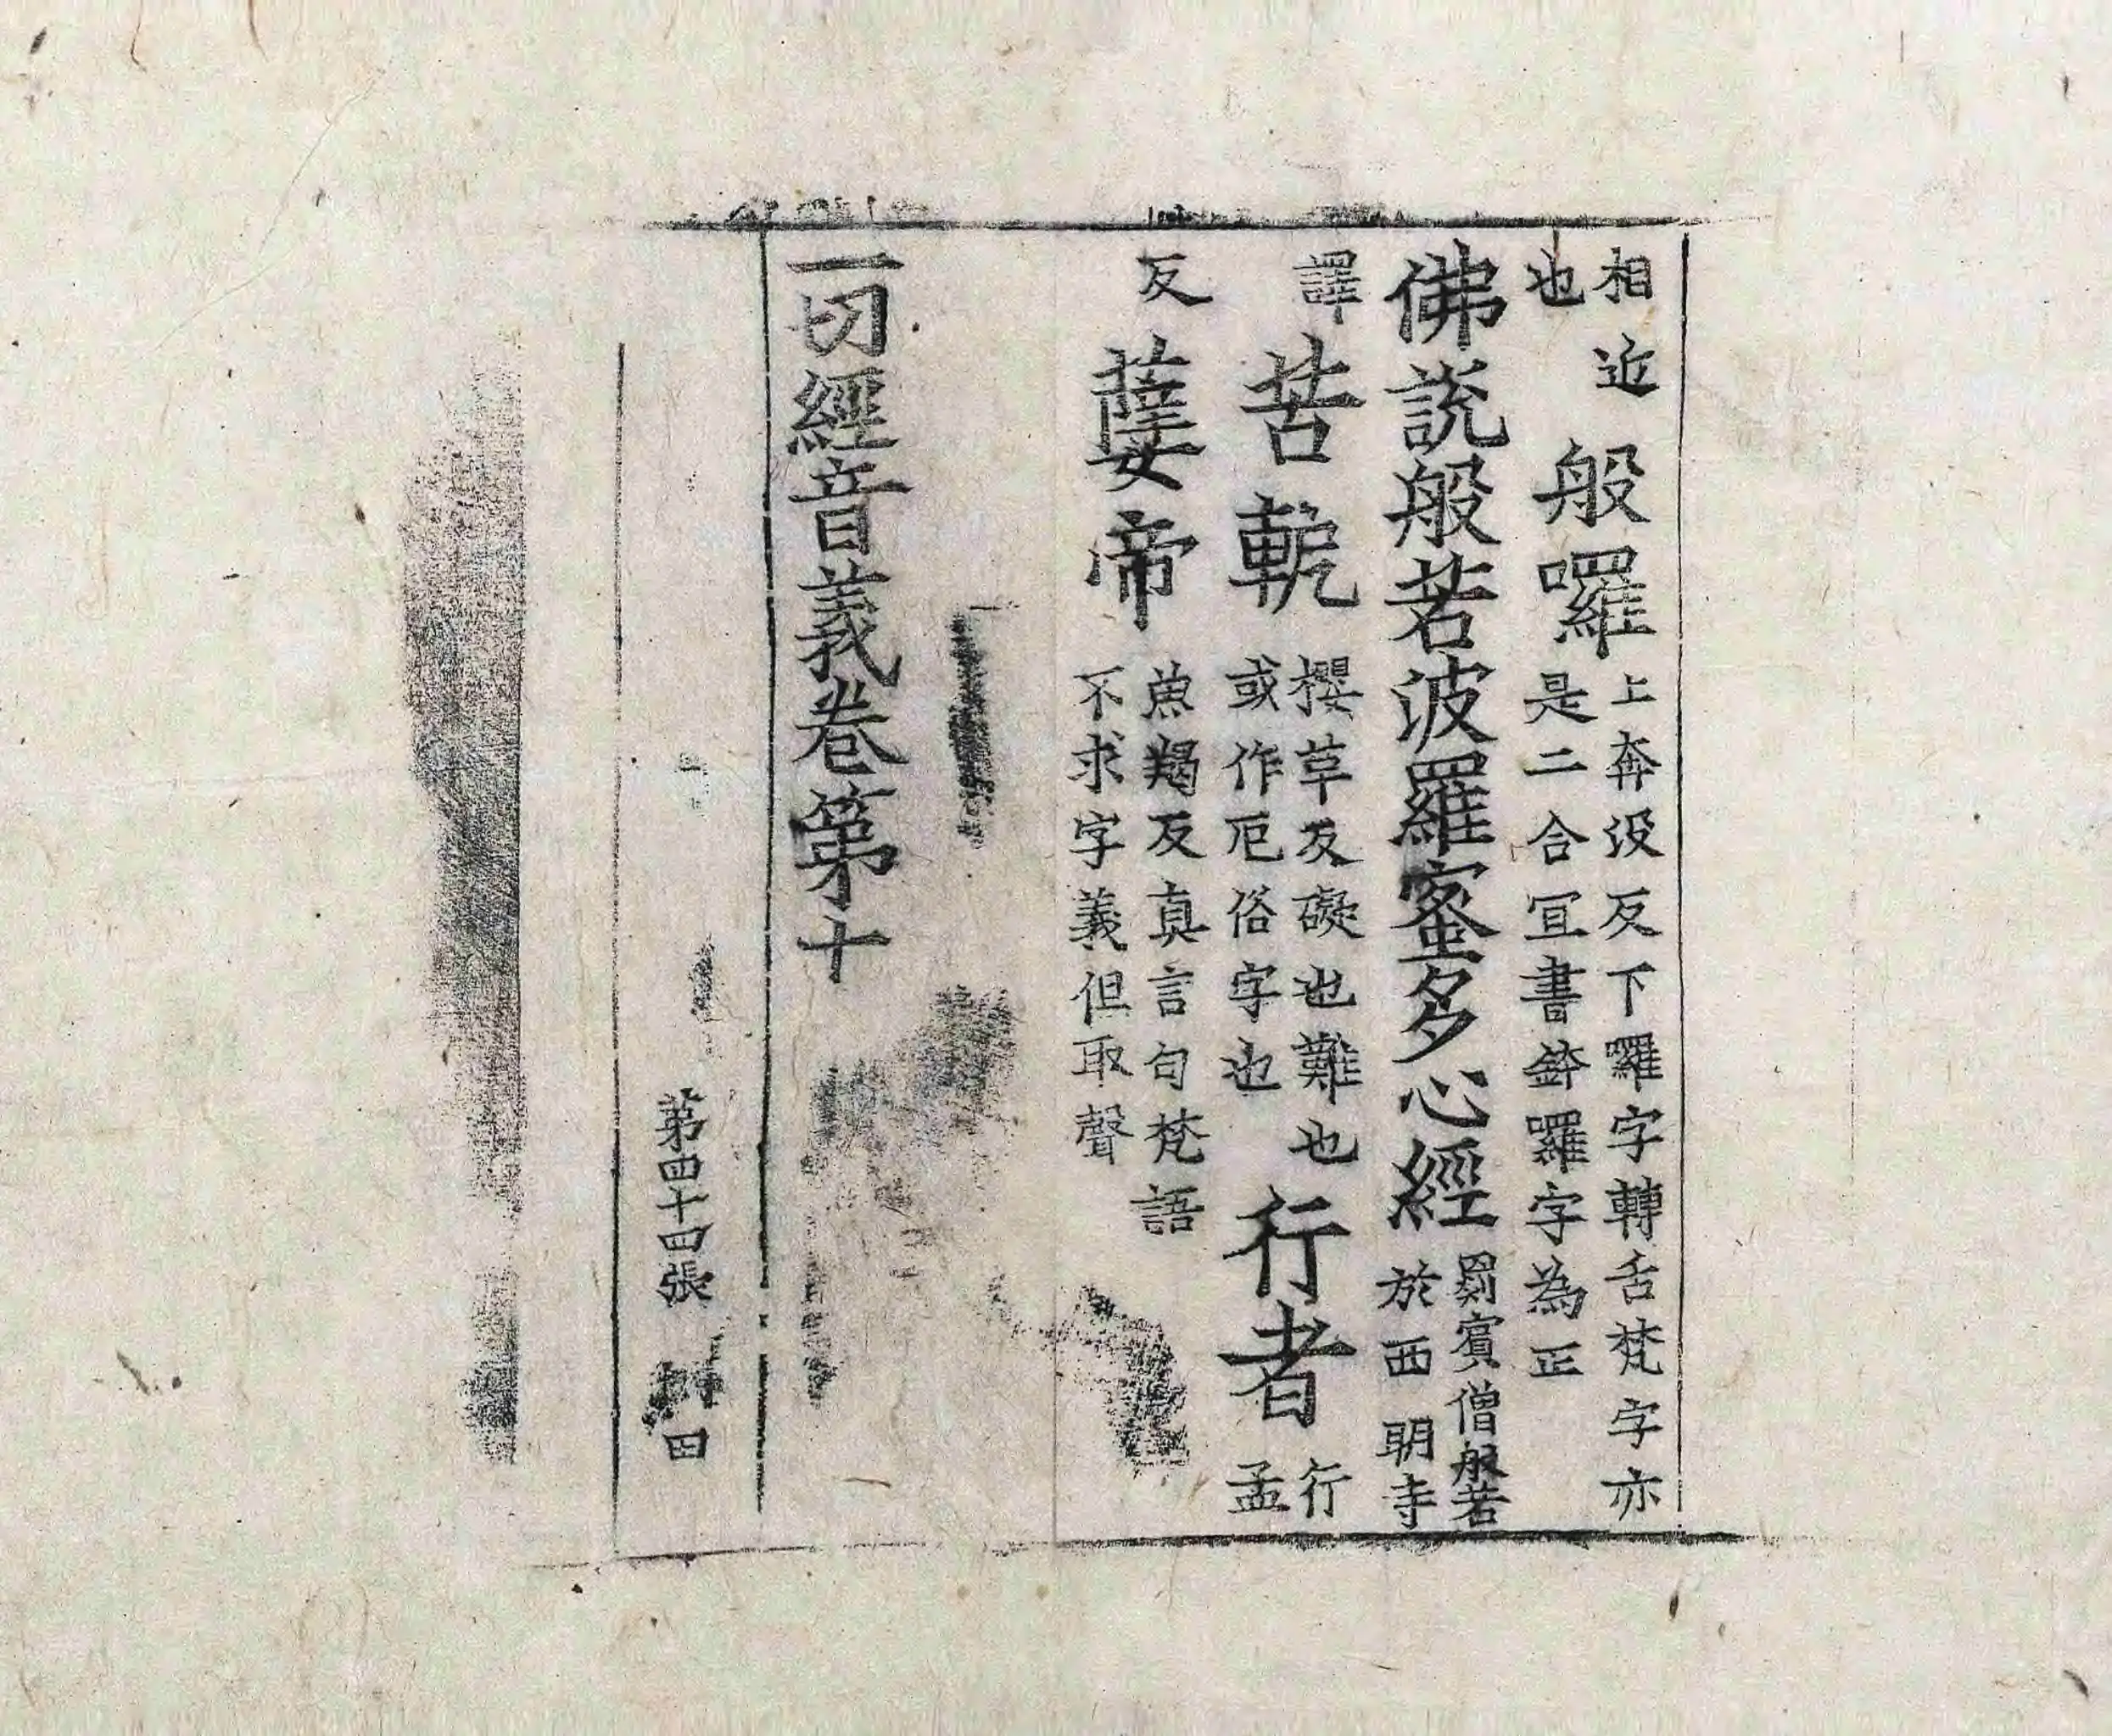 相近
也
般囉
上奔沒反下囉字轉舌梵字亦
是二合冝書鉢囉字為正
佛說般若波羅蜜多心經
罽賓僧般若
於西明寺
譯
苦軛
櫻草反礙也難也
或作厄俗字也
行者
行
孟
反
㜸帝
魚羯反真言句梵語
不求字義但取聲
一切經音義卷第十
第四十四張
田